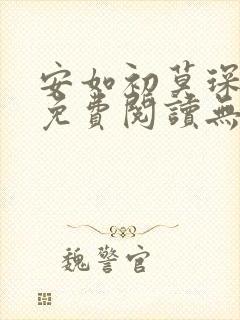 安如初莫琛
免費閱讀無
魏警官